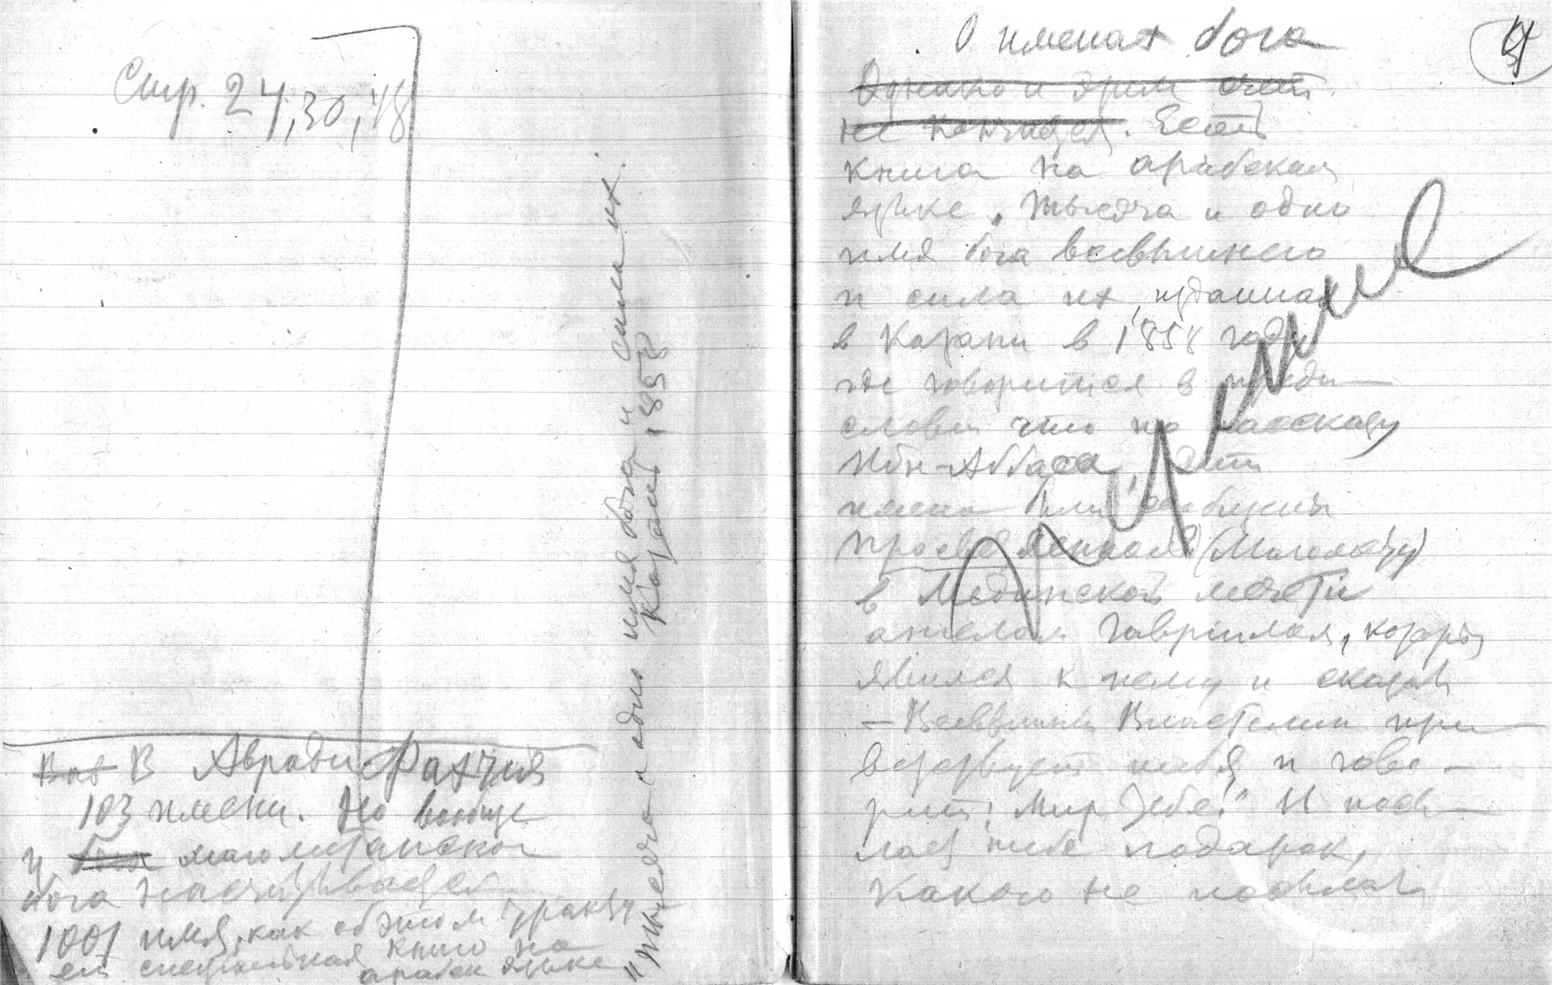 Стр. 24, 30, 48
Вот В Авради Фатхия
103 имени. Но вообще
у бога магометанского
бога насчитывается
1001 имя, как об этом
есть специальная книга на
арабск языке
"Тысяча и одно имя бога и сила их.
Казань, 1858
О именах бога
4
Однако и этим счет
не кончается. Есть
книга на арабском
языке „Тысяча и одно
имя бога всевышнего
и сила их, изданная
в Казани в 1858 году
где говорится в преди
словии что по рассказу
Ибн-Аббаса, эти
имена были сообщены
(Магомету)
в Мединской мечети
ангелом Гавриилом, который
явился к нему и сказал
— Всевышний Властелин при
ветствует тебя и гово-
рит: Мир тебе!" И посы-
лает тебе подарок,
какого не посылал